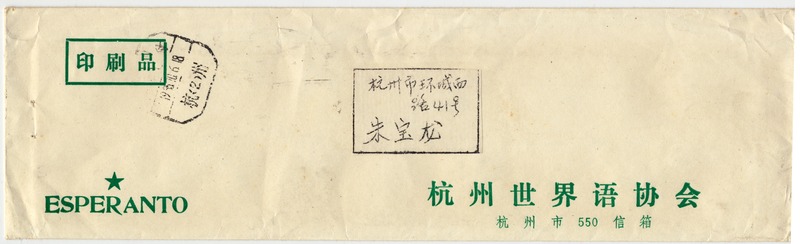 印刷品
杭(2)州
杭州市环城西
路41号
朱宝龙
ESPERANTO
杭州世界语协会
杭州市550信箱